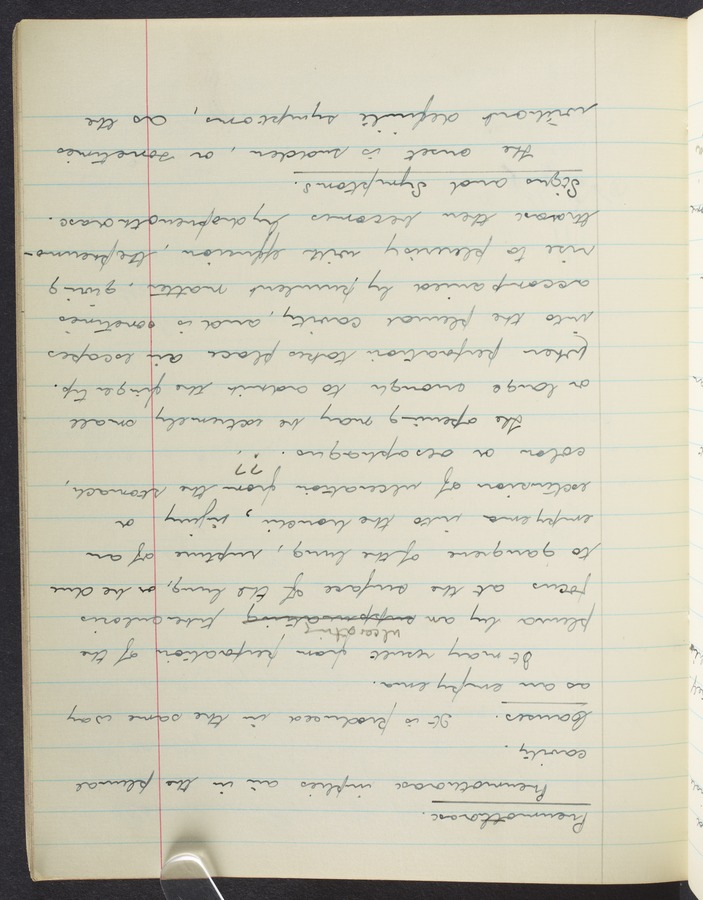 Pneumothorax.
Pneumothorax implies air in the pleural
cavity.
Causes. It is produced in the same way
as an empyema.
It may result from perforation of the
ulcerating
pleura by an suppurating tuberculous
focus at the surface of the lung, or be due
to gangrene of the lung, rupture of an
empyema into the bronchi, injury or
extension of ulceration from the stomach,
??
colon or oesophagus.
The opening may be extremely small
or large enough to admit the finger tip.
When perforation takes place air escapes
into the pleural cavity, and is sometimes
accompanied by purulent matter, giving
rise to pleurisy with effusion, the pneumo-
thorax then becomes hydropneumothorax.
Signs and Symptoms.
The onset is sudden, or sometimes
without definite symptoms, as the